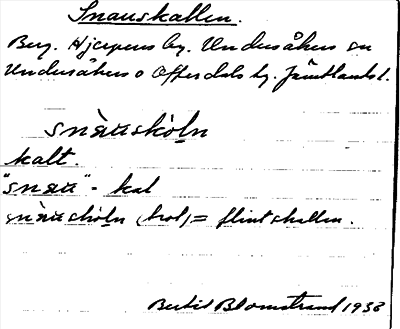 Snauskallen.
Berg. Hjerpens by. Undersåkers sn
Undersåkers o Offerdals tg. Jämtlands l.
snàuskòln
kalt.
"snau" - kal
snàuskòln (trol) = flintskallen.
Bertil Blomstrand 1938